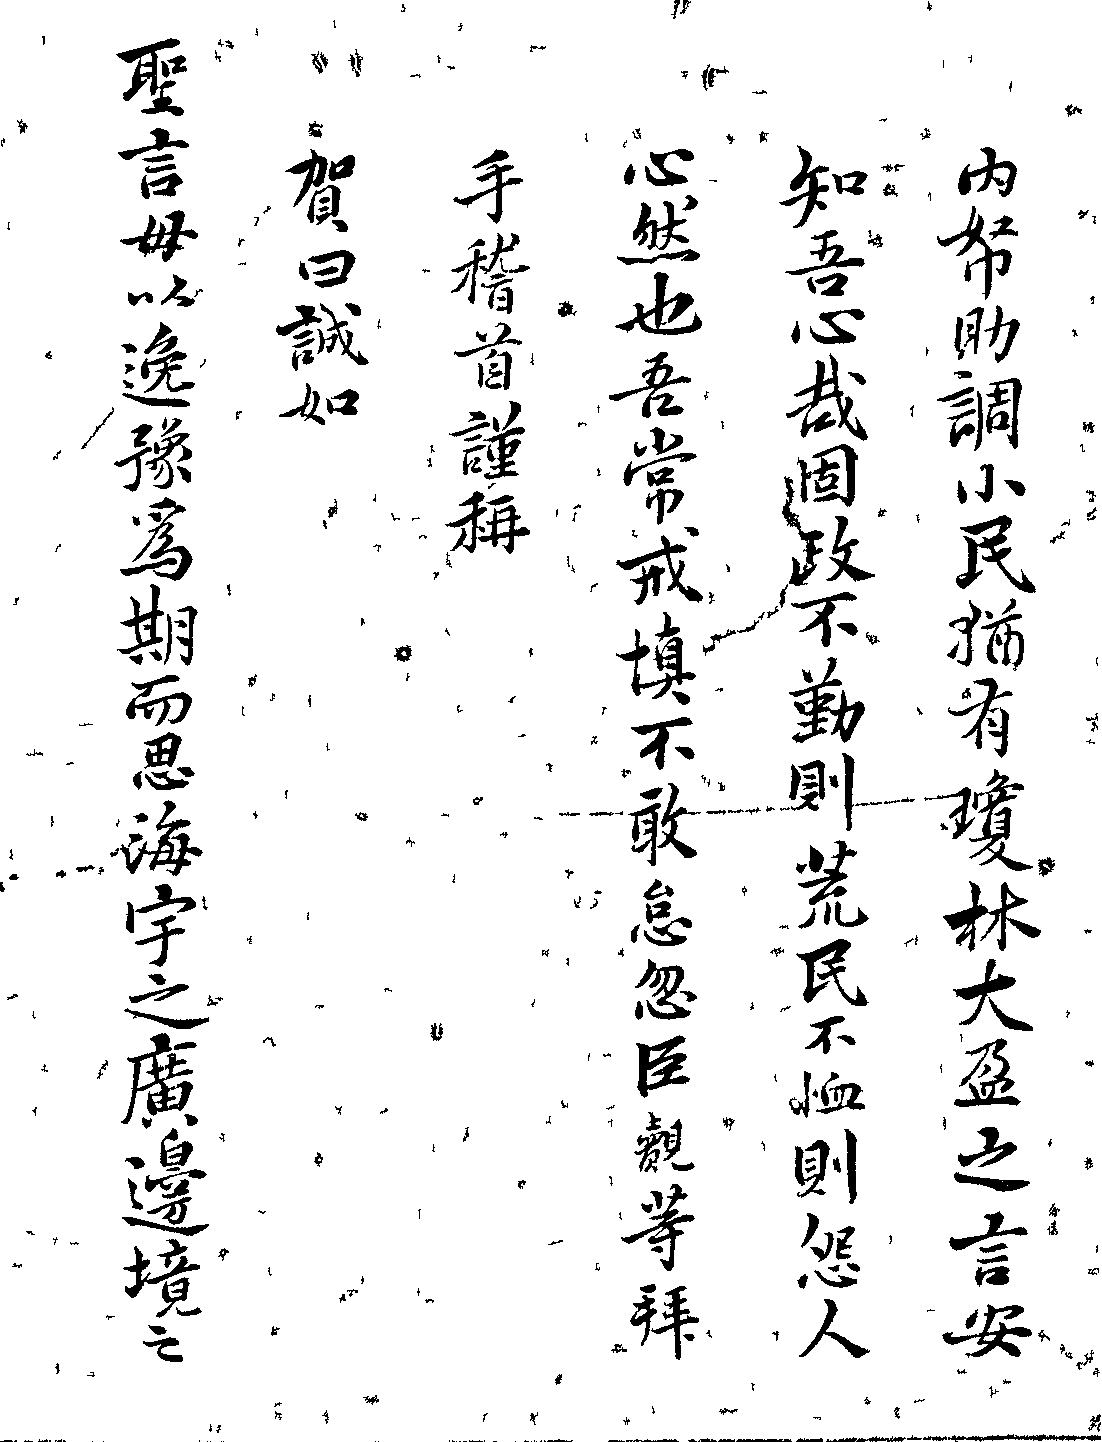 內帑助調小民猶有瓊林大盈之言安
知吾心哉固政不勤則荒民不恤則怨人
心然也吾常戒慎不敢怠忽臣觀等拜
手稽首謹稱
賀曰誠如
聖言毋以逸豫為期而思海宇之廣邊境之